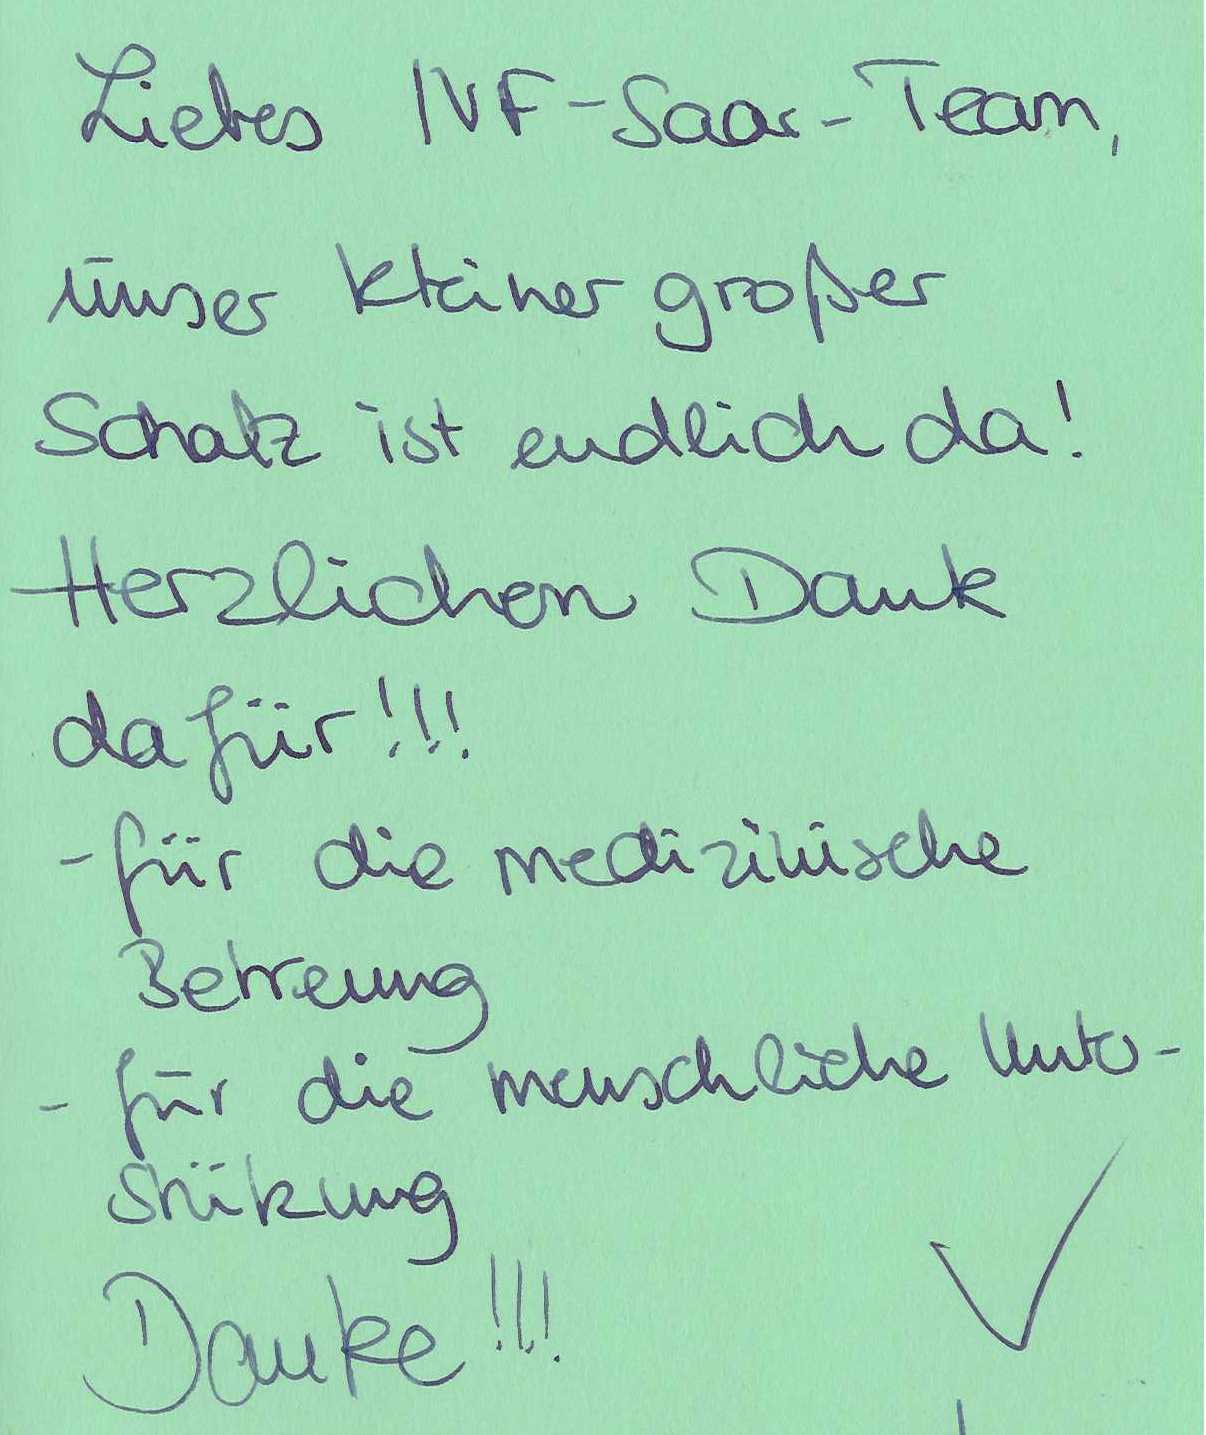 Liebes IVF-Saar-Team,
unser kleiner großer
Schatz ist endlich da!
Herzlichen Dank
dafür!!!
- für die medizinische
Betreuung
- für die menschliche Unter-
stützung
Danke!!!